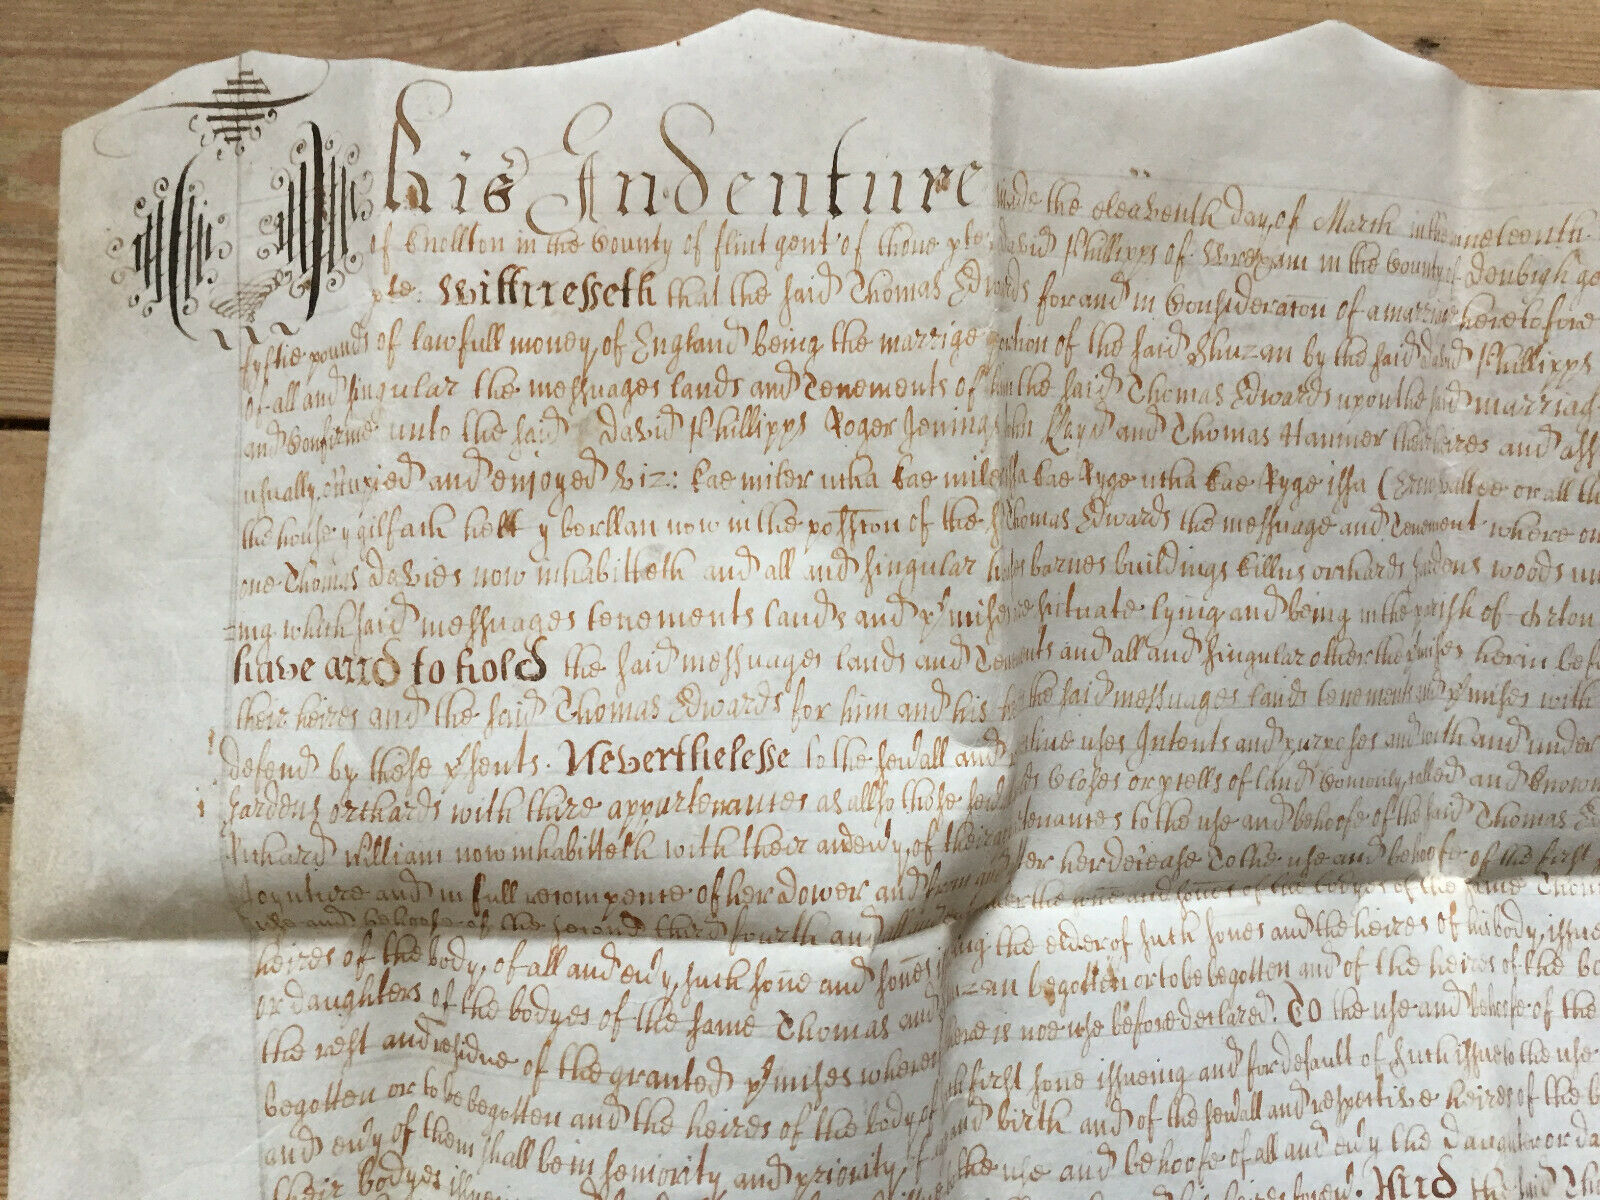 This Indenture made the eleaventh day of March in the nineteenth
of Knolton in the County of flint gent of thone pte David Phillipps of Wrexam in the County of Denbigh ge
pte: Wittnesseth that the said Thomas Edwards for and in Consideracon of a marriage heretofore
fyftie pounds of lawfull money of England being the marrige portion of the said Shuzan by the said David Phillipps
of all and singular the messuages lands and Tenements of him the said Thomas Edwards upon the said marriag
and Confirme unto the said David Phillipps Roger Jenings John Lloyd and Thomas Hanmer their heires and ass
usually occupied and enjoyed viz: kae miler ucha kae miler issa kae Ryge ucha kae Ryge issa or all th
the house y gilfach y berllan now in the possion of the sd Thomas Edwards the messuage and Tenement where on
one Thomas Davies now inhabitteth and all and singular houses barnes buildings killns orchards gardens woods un
ing which said messuages tenements lands and pmises are situate lying and being in the parish of
have and to hold the said messuages lands and Tenements and all and singular other the pmises herin bef
their heires and the said Thomas Edwards for him and his the said messuages lands tenements and pmises with
defend by these psents. Neverthelesse to the sevall and uses Intents and purposes and with and under
gardens orchards with there appurtenances as allso those sevall Closes or pcells of land Comonly called and known
Richard William now inhabitteth with their and evy of their to the use and behoofe of the said Thomas Ed
Joynture and in full recompence of her dower and from and after her decease To the use and behoofe of the first
use and behoofe of the second third fourth and all and every other the sone and sones of the bodyes of the same Thom
heires of the body of all and evy such sone and sones being the elder of such sones and the heires of his body issue
or daughters of the bodyes of the same Thomas and Shuzan begotten or to be begotten and of the heires of the bo
the rest and residue of the granted pmises whereof there is noe use before declared. To the use and behoofe of the
begotten or to be begotten and the heires of the body of such first sone issueing and for default of such issue to the use
and evy of them shall be in seniority and priority of age and birth and of the sevall and respective heires of the b
their bodyes issueing the use and behoofe of all and evy the daughter or da
And the said Tho